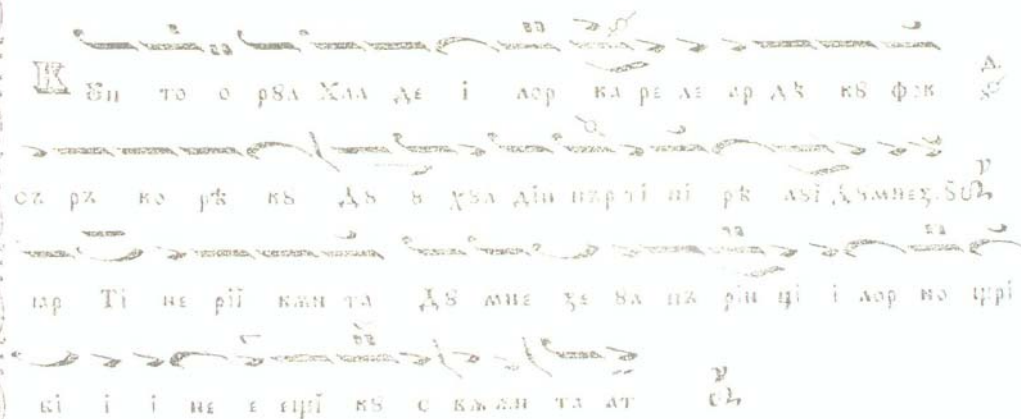 К ꙋп то о рꙋл Хал де і лор ка ре ле ар дѣ кꙋ фок
съ ръ ко рѣ кꙋ Дꙋ ꙋ хꙋл дін пър ті ні рѣ лꙋі
іар Ті не рії кѫн та Дꙋ мне ꙁе ꙋл пъ рін ці і лор но щрі
бі і і не е ещі кꙋ та ат